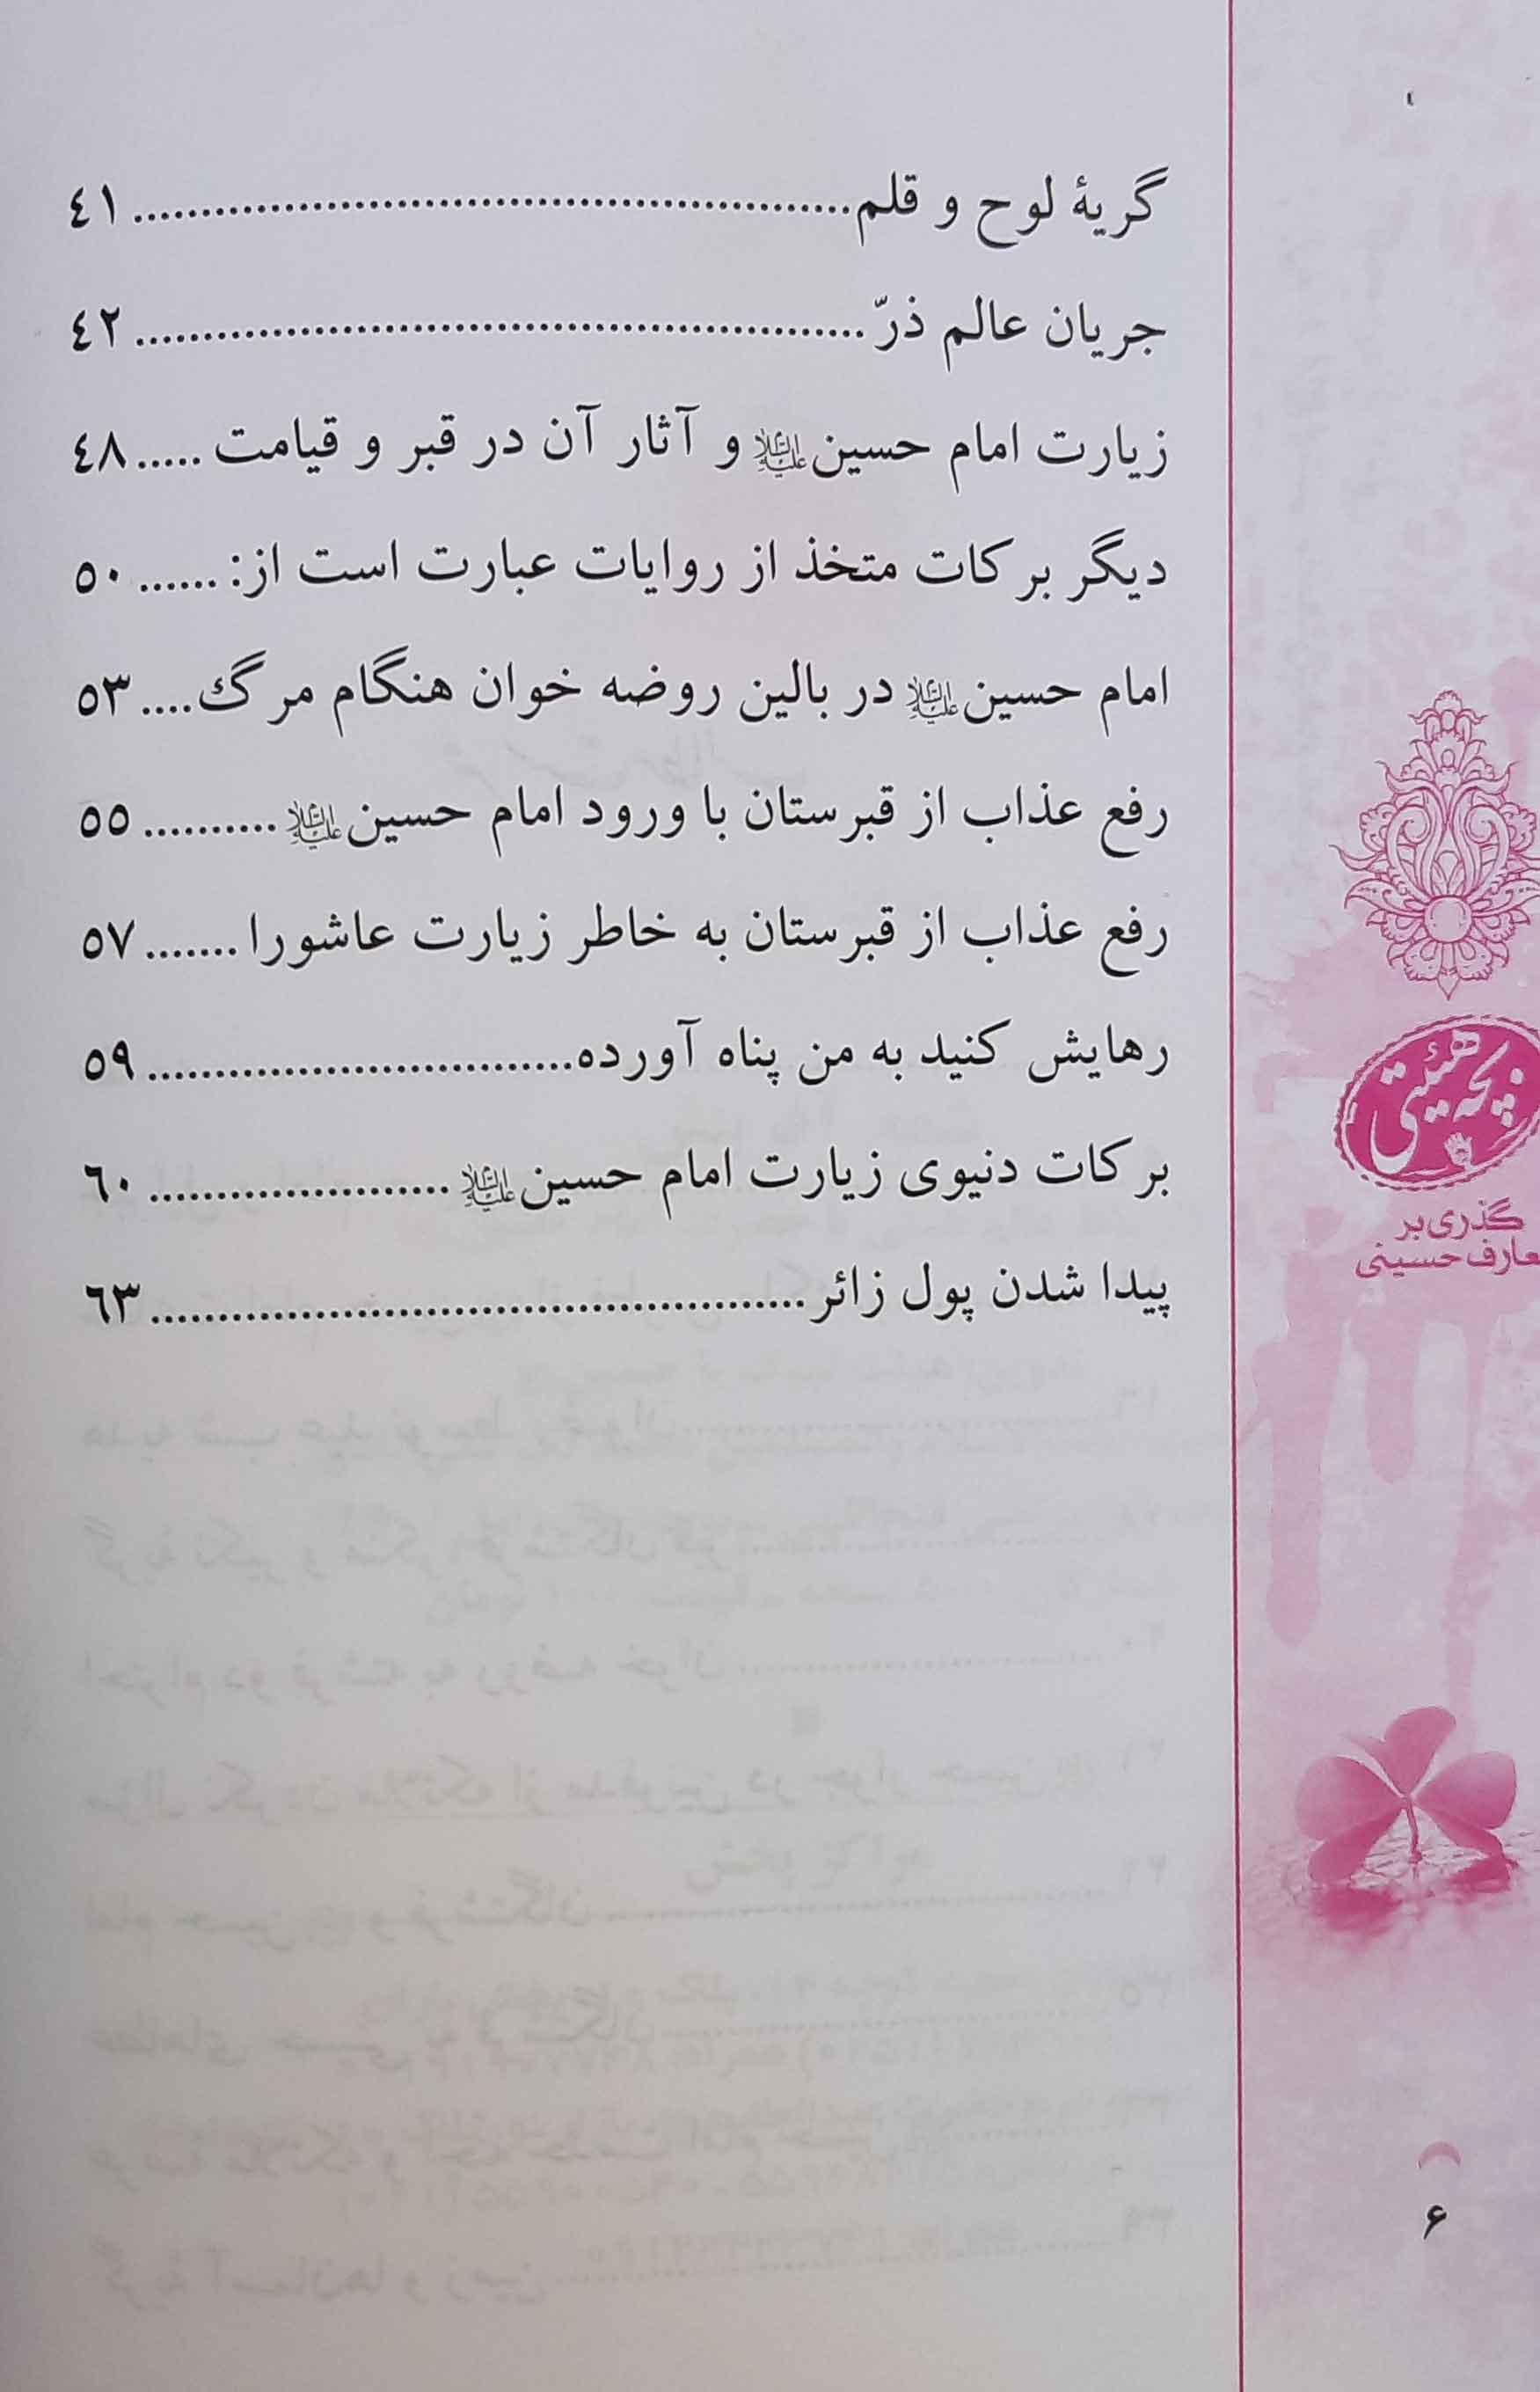 گریهٔ لوح و قلم..................................................... ٤١
جریان عالم ذرّ ..................................................... ٤٢
زیارت امام حسین علیه‌السلام و آثار آن در قبر و قیامت ..... ٤٨
دیگر برکات متخذ از روایات عبارت است از: ...... ٥٠
امام حسین علیه‌السلام در بالین روضه خوان هنگام مرگ.... ٥٣
رفع عذاب از قبرستان با ورود امام حسین علیه‌السلام .......... ٥٥
رفع عذاب از قبرستان به خاطر زیارت عاشورا ....... ٥٧
رهایش کنید به من پناه آورده................................ ٥٩
برکات دنیوی زیارت امام حسین علیه‌السلام ...................... ٦٠
پیدا شدن پول زائر................................................ ٦٣
بچه هیئتی
گذری بر
معارف حسینی
۶